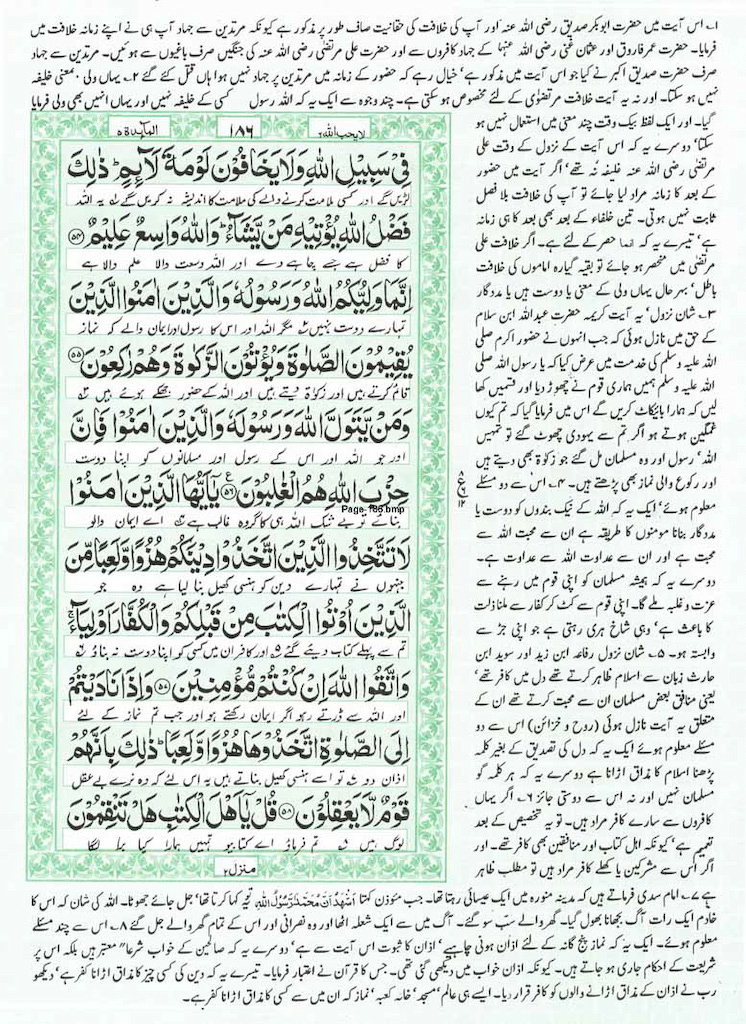 ۱۔ اس آیت میں حضرت ابوبکر صدیق رضی اللہ عنہ اور آپ کی خلافت کی حقانیت صاف طور پر مذکور ہے کیونکہ مرتدین سے جہاد آپ ہی نے اپنے زمانہ خلافت میں
فرمایا۔ حضرت عمر فاروق اور عثمان غنی رضی اللہ عنہما کے جہاد کافروں سے اور حضرت علی مرتضیٰ رضی اللہ عنہ کی جنگیں صرف باغیوں سے ہوئیں۔ مرتدین سے جہاد
صرف حضرت صدیق اکبر نے کیا جو اس آیت میں مذکور ہے' خیال رہے کہ حضور کے زمانہ میں مرتدین پر جہاد نہیں ہوا ہاں قتل کئے گئے ۲۔ یہاں ولی بمعنی خلیفہ
نہیں ہو سکتا۔ اور نہ یہ آیت خلافت مرتضوی کے لئے مخصوص ہو سکتی ہے۔ چند وجوہ سے ایک یہ کہ اللہ رسول کسی کے خلیفہ نہیں اور یہاں انہیں بھی ولی فرمایا
لا یحب اللہ ۶
۱۸۶
المآئدۃ ۵
فِیْ سَبِیْلِ اللهِ وَلَا یَخَافُوْنَ لَوْمَةَ لَآئِمٍ ؕ ذٰلِكَ
لڑیں گے اور کسی ملامت کرنے والے کی ملامت کا اندیشہ نہ کریں گے یہ اللہ
فَضْلُ اللهِ یُؤْتِیْهِ مَنْ یَّشَآءُ ؕ وَاللهُ وَاسِعٌ عَلِیْمٌ ﴿۵۴﴾
کا فضل ہے جسے چاہے دے اور اللہ وسعت والا علم والا ہے
اِنَّمَا وَلِیُّكُمُ اللهُ وَرَسُوْلُهٗ وَالَّذِیْنَ اٰمَنُوا الَّذِیْنَ
تمہارے دوست نہیں مگر اللہ اور اس کا رسول اور ایمان والے کہ نماز
یُقِیْمُوْنَ الصَّلٰوةَ وَیُؤْتُوْنَ الزَّكٰوةَ وَهُمْ رٰكِعُوْنَ ﴿۵۵﴾
قائم کرتے ہیں اور زکوٰۃ دیتے ہیں اور اللہ کے حضور جھکے ہوئے ہیں
وَمَنْ یَّتَوَلَّ اللهَ وَرَسُوْلَهٗ وَالَّذِیْنَ اٰمَنُوْا فَاِنَّ
اور جو اللہ اور اس کے رسول اور مسلمانوں کو اپنا دوست
حِزْبَ اللهِ هُمُ الْغٰلِبُوْنَ ﴿۵۶﴾ یٰۤاَیُّهَا الَّذِیْنَ اٰمَنُوْا
بنائے تو بے شک اللہ ہی کا گروہ غالب ہے اے ایمان والو
Page-186.bmp
لَا تَتَّخِذُوا الَّذِیْنَ اتَّخَذُوْا دِیْنَكُمْ هُزُوًا وَّلَعِبًا مِّنَ
جنہوں نے تمہارے دین کو ہنسی کھیل بنا لیا ہے وہ جو
الَّذِیْنَ اُوْتُوا الْكِتٰبَ مِنْ قَبْلِكُمْ وَالْكُفَّارَ اَوْلِیَآءَ ۚ
تم سے پہلے کتاب دیئے گئے اور کافر ان میں کسی کو اپنا دوست نہ بناؤ
وَاتَّقُوا اللهَ اِنْ كُنْتُمْ مُّؤْمِنِیْنَ ﴿۵۷﴾ وَاِذَا نَادَیْتُمْ
اور اللہ سے ڈرتے رہو اگر ایمان رکھتے ہو اور جب تم نماز کے لئے
اِلَی الصَّلٰوةِ اتَّخَذُوْهَا هُزُوًا وَّلَعِبًا ؕ ذٰلِكَ بِاَنَّهُمْ
اذان دو تو اسے ہنسی کھیل بناتے ہیں یہ اس لئے کہ وہ نرے بے عقل
قَوْمٌ لَّا یَعْقِلُوْنَ ﴿۵۸﴾ قُلْ یٰۤاَهْلَ الْكِتٰبِ هَلْ تَنْقِمُوْنَ
لوگ ہیں تم فرماؤ اے کتابیو تمہیں ہمارا کیا برا لگا
منزل ۲
گیا۔ اور ایک لفظ بیک وقت چند معنی میں استعمال نہیں ہو
سکتا' دوسرے یہ کہ اس آیت کے نزول کے وقت علی
مرتضیٰ رضی اللہ عنہ خلیفہ نہ تھے' اگر آیت میں حضور
کے بعد کا زمانہ مراد لیا جائے تو آپ کی خلافت بلا فصل
ثابت نہیں ہوتی۔ تین خلفاء کے بعد بھی بعد کا ہی زمانہ
ہے' تیسرے یہ کہ انما حصر کے لئے ہے۔ اگر خلافت علی
مرتضیٰ میں منحصر ہو جائے تو بقیہ گیارہ اماموں کی خلافت
باطل' بہرحال یہاں ولی کے معنی یا دوست ہیں یا مددگار
۳۔ شان نزول' یہ آیت کریمہ حضرت عبداللہ ابن سلام
کے حق میں نازل ہوئی کہ جب انہوں نے حضور اکرم صلی
اللہ علیہ وسلم کی خدمت میں عرض کیا کہ یا رسول اللہ صلی
اللہ علیہ وسلم ہمیں ہماری قوم نے چھوڑ دیا اور قسمیں کھا
لیں کہ ہمارا بائیکاٹ کریں گے اس میں فرمایا گیا کہ تم کیوں
غمگین ہوتے ہو اگر تم سے یہودی چھوٹ گئے تو تمہیں
اللہ' رسول اور وہ مسلمان مل گئے جو زکوٰۃ بھی دیتے ہیں
اور رکوع والی نماز بھی پڑھتے ہیں۔ ۴۔ اس سے دو مسئلے
معلوم ہوئے' ایک یہ کہ اللہ کے نیک بندوں کو دوست یا
مددگار بنانا مومنوں کا طریقہ ہے ان سے محبت اللہ سے
محبت ہے اور ان سے عداوت اللہ سے عداوت ہے۔
دوسرے یہ کہ ہمیشہ مسلمان کو اپنی قوم میں رہنے سے
عزت و غلبہ ملے گا۔ اپنی قوم سے کٹ کر کفار سے ملنا ذلت
کا باعث ہے' وہی شاخ ہری رہتی ہے جو اپنی جڑ سے
وابستہ ہو۔ ۵۔ شان نزول رفاعہ ابن زید اور سوید ابن
حارث زبان سے اسلام ظاہر کرتے تھے دل میں کافر تھے'
یعنی منافق بعض مسلمان ان سے محبت کرتے تھے ان کے
متعلق یہ آیت نازل ہوئی (روح و خزائن) اس سے دو
مسئلے معلوم ہوئے ایک یہ کہ دل کی تصدیق کے بغیر کلمہ
پڑھنا اسلام کا مذاق اڑانا ہے دوسرے یہ کہ ہر کلمہ گو
مسلمان نہیں اور نہ اس سے دوستی جائز ۶۔ اگر یہاں
کافروں سے سارے کافر مراد ہیں۔ تو یہ تخصیص کے بعد
تعمیم ہے' کیونکہ اہل کتاب اور منافقین بھی کافر تھے۔ اور
اگر اس سے مشرکین یا کھلے کافر مراد ہیں تو مطلب ظاہر
ہے ۷۔ امام سدی فرماتے ہیں کہ مدینہ منورہ میں ایک عیسائی رہتا تھا۔ جب مؤذن کہتا اَشْهَدُ اَنَّ مُحَمَّدًا رَّسُوْلُ اللهِ تو کہا کرتا تھا' جل جائے جھوٹا۔ اللہ کی شان کہ اس کا
خادم ایک رات آگ بجھانا بھول گیا۔ گھر والے سب سو گئے۔ آگ میں سے ایک شعلہ اٹھا اور وہ نصرانی اور اس کے تمام گھر والے جل گئے ۸۔ اس سے چند مسئلے
معلوم ہوئے۔ ایک یہ کہ نماز پنج گانہ کے لئے اذان ہونی چاہیے' اذان کا ثبوت اس آیت سے ہے' دوسرے یہ کہ صالحین کے خواب شرعا" معتبر ہیں بلکہ اس پر
شریعت کے احکام جاری ہو جاتے ہیں۔ کیونکہ اذان خواب میں دیکھی گئی تھی۔ جس کا قرآن نے اعتبار فرمایا۔ تیسرے یہ کہ دین کی کسی چیز کا مذاق اڑانا کفر ہے' دیکھو
رب نے اذان کے مذاق اڑانے والوں کو کافر قرار دیا۔ ایسے ہی عالم' مسجد' خانہ کعبہ' نماز کہ ان میں سے کسی کا مذاق اڑانا کفر ہے۔